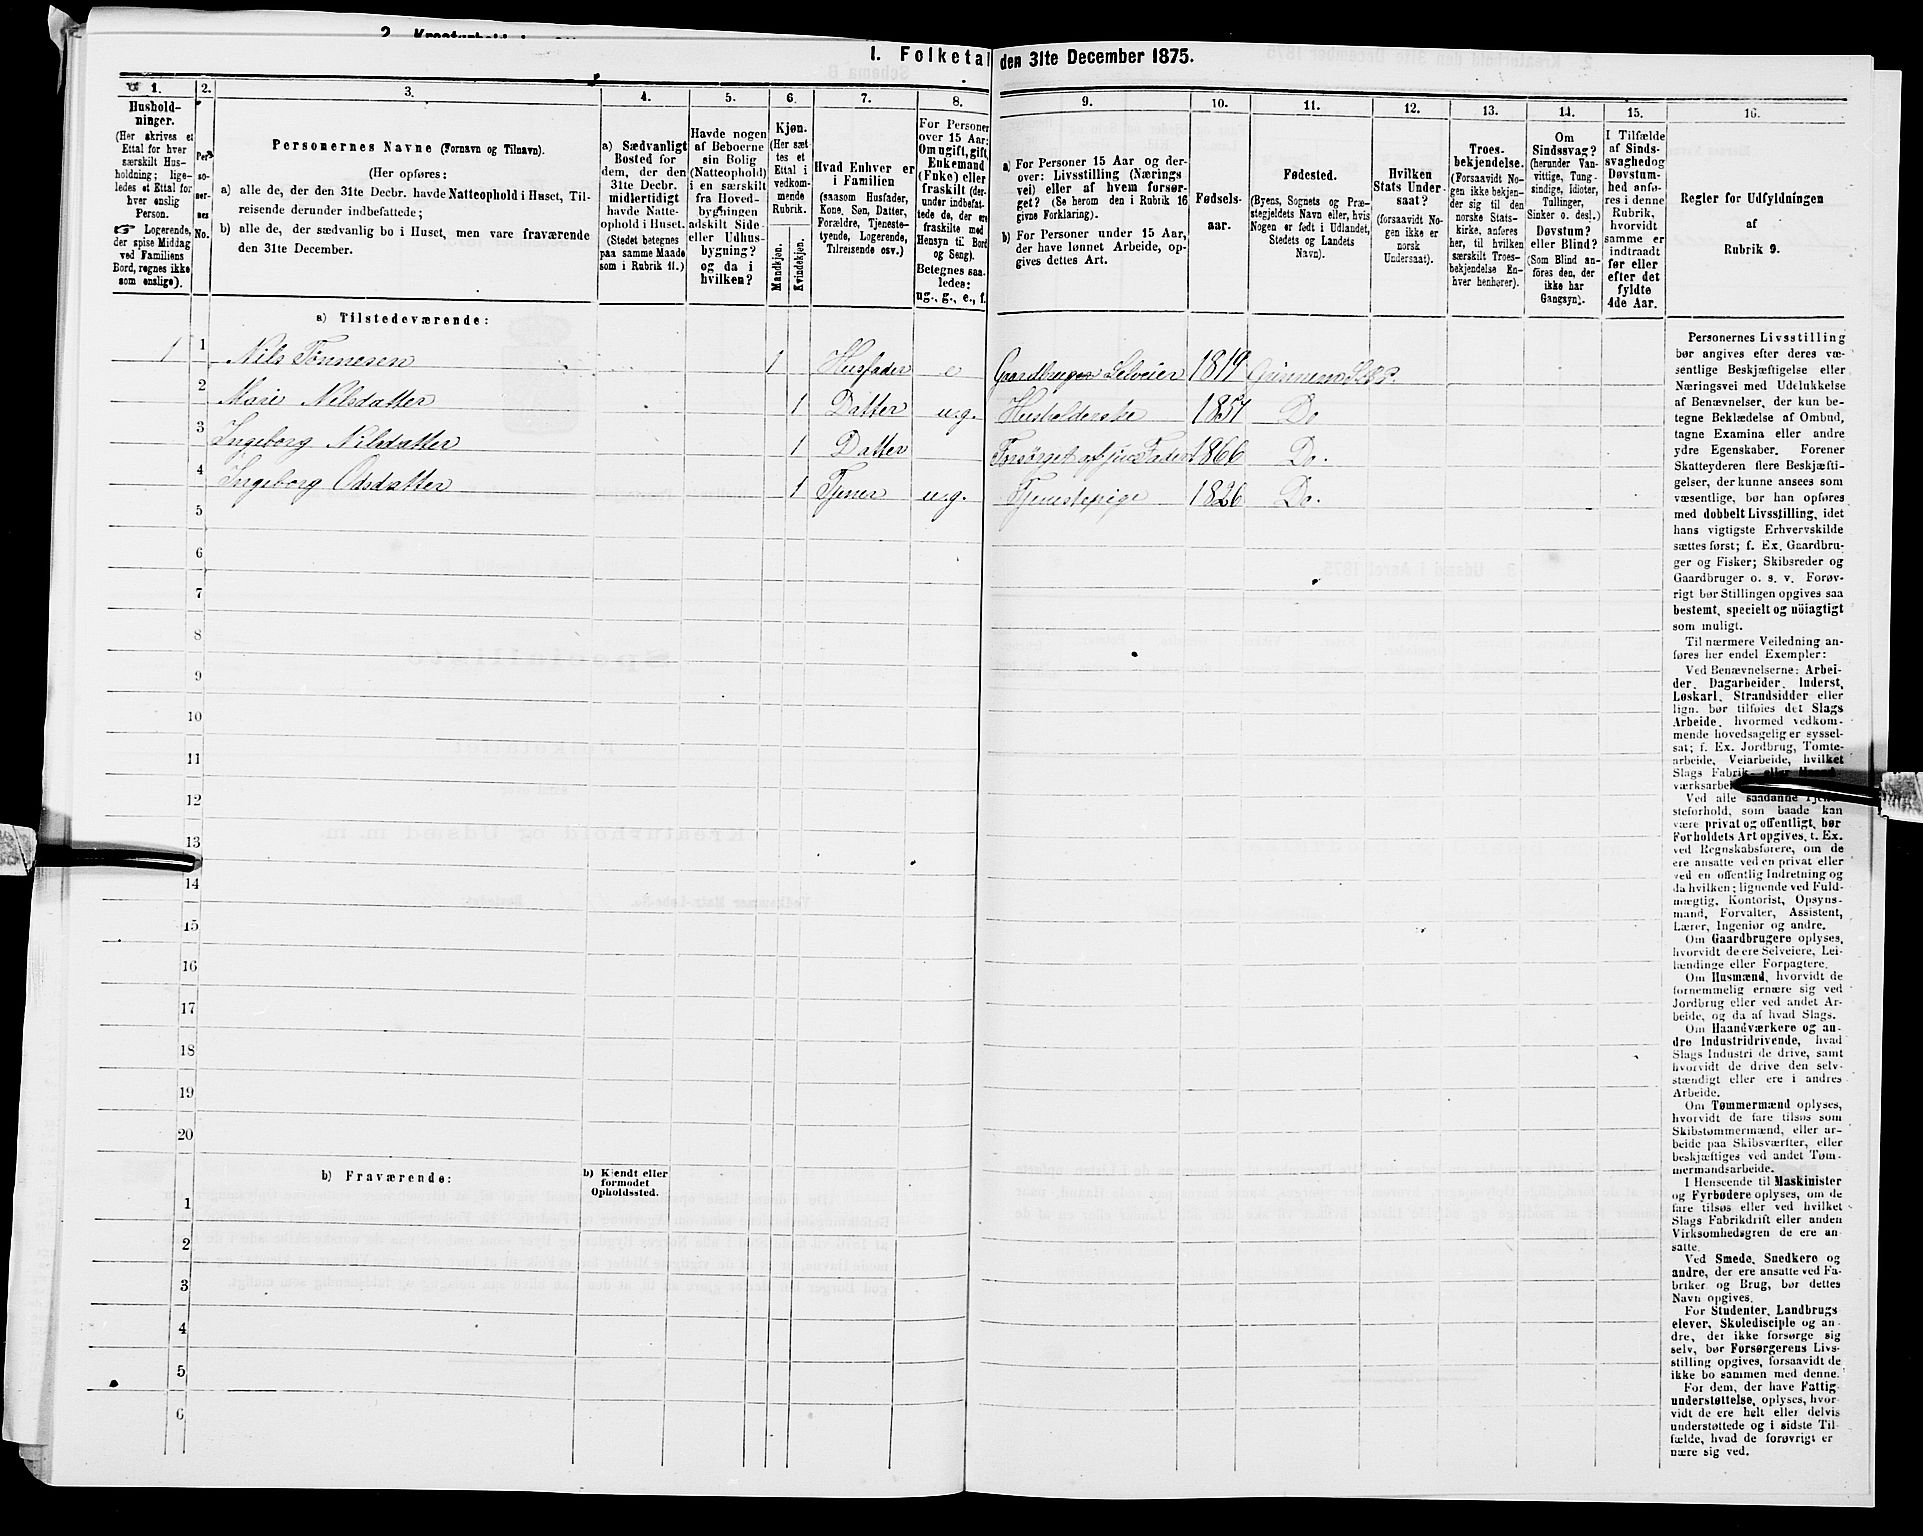 I. Folketal den 31te December 1875.
1. 2. 3. 4. 5. 6. 7. 8. 9. 10. 11. 12. 13. 14. 15. 16.
Hushold-
ninger.
(Her skrives et
Ettal for hver
særskilt Hus-
holdning; lige-
ledes et Ettal for
hver enslig
Person.
☞ Logerende,
der spise Middag
ved Familiens
Bord, regnes ikke
som enslige).
Per-
so-
ner-
nes
No.
Personernes Navne (Fornavn og Tilnavn).
(Her opføres:
a) alle de, der den 31te Decbr. havde Natteophold i Huset, Til-
reisende derunder indbefattede;
b) alle de, der sædvanlig bo i Huset, men vare fraværende
den 31te December.
a) Sædvanligt
Bosted for
dem, der den
31te Decbr.
midlertidigt
havde Natte-
ophold i Huset.
(Stedet betegnes
paa samme Maade
som i Rubrik 11.)
Havde nogen
af Beboerne
sin Bolig
(Natteophold)
i en særskilt
fra Hoved-
bygningen
adskilt Side-
eller Udhus-
bygning?
og da i
hvilken?
Kjøn.
(Her sæt-
tes et
Ettal i
vedkom-
mende
Rubrik.
Mandkjøn.
Kvindekjøn.
Hvad Enhver er
i Familien
(saasom Husfader,
Kone, Søn, Datter,
Forældre, Tjeneste-
tyende, Logerende,
Tilreisende osv.)
For Personer
over 15 Aar:
Om ugift, gift,
Enkemand
(Enke) eller
fraskilt (der-
under indbefat-
tede de, der ere
fraskilte med
Hensyn til Bord
og Seng).
Betegnes saa-
ledes:
ug., g., e., f.
a) For Personer 15 Aar og der-
over: Livsstilling (Nærings
vei) eller af hvem forsør-
get? (Se herom den i Rubrik 16
givne Forklaring).
b) For Personer under 15 Aar,
der have lønnet Arbeide, op-
gives dettes Art.
Fødsels-
aar.
Fødested.
(Byens, Sognets og Præ-
stegjeldets Navn eller, hvis
Nogen er født i Udlandet,
Stedets og Landets
Navn).
Hvilken
Stats Under-
saat?
(forsaavidt No-
gen ikke er
norsk
Undersaat).
Troes-
bekjendelse.
(Forsaavidt No-
gen ikke bekjen-
der sig til den
norske Stats-
kirke, anføres
her, til hvilken
særskilt Troes-
bekjendelse En-
hver henhører).
Om
Sindssvag?
(herunder Van-
vittige, Tung-
sindige, Idioter,
Tullinger,
Sinker o. desl.)
Døvstum?
eller Blind?
(Som Blind an-
føres den, der
ikke har
Gangsyn).
I Tilfælde
af Sinds-
svaghedog
Døvstum-
hed anfø-
res i denne
Rubrik,
hvorvidt
samme er
indtraadt
før eller
efter det
fyldte
4de Aar.
Regler for Udfyldningen
af
Rubrik 9.
a) Tilstedeværende:
1 1 Nils Tönnesen 1 Husfader e Gaardbruger Selveier 1819
2 Marie Nilsdatter 1 Datter u.g. Husholderske 1857 Do
3 Ingeborg Nilsdatter 1 Datter Forsörget af sin Fader 1866 Do.
4 Ingeborg Odsdatter 1 Tjener u.g. Tjenestepige 1826 Do.
5
6
7
8
9
10
11
12
13
14
15
16
17
18
19
20
b) Fraværende: b) Kjendt eller
formodet
Opholdssted.
1
2
3
4
5
6
Personernes Livsstilling
bør angives efter deres væ-
sentlige Beskjæftigelse eller
Næringsvei med Udelukkelse
af Benævnelser, der kun be-
tegne Beklædelse af Ombud,
tagne Examina eller andre
ydre Egenskaber. Forener
Skatteyderen flere Beskjæfti-
gelser, der kunne ansees som
væsentlige, bør han opføres
med dobbelt Livsstilling, idet
hans vigtigste Erhvervskilde
sættes først; f. Ex. Gaardbru-
ger og Fisker; Skibsreder og
Gaardbruger o. s. v. Forøv-
rigt bør Stillingen opgives saa
bestemt, specielt og nöiagtigt
som muligt.
Til nærmere Veiledning an-
føres her endel Exempler:
Ved Benævnelserne: Arbei-
der, Dagarbeider, Inderst,
Løskarl, Strandsidder eller
lign. bør tilføies det Slags
Arbeide, hvormed vedkom-
mende hovedsagelig er syssel-
sat; f. Ex. Jordbrug, Tomte-
arbeide, Veiarbeide, hvilket
Slags Fabrik- eller Haand-
værksarbe
Ved alle saadanne Tjene-
steforhold, som baade kan
være privat og offentligt, bør
Forholdets Art opgives, t. Ex.
ved Regnskabsførere, om de
ere ansatte ved en privat eller
ved en offentlig Indretning og
da hvilken; lignende ved Fuld-
mægtig, Kontorist, Opsyns-
mand, Forvalter, Assistent,
Lærer, Ingeniør og andre.
Om Gaardbrugere oplyses,
hvorvidt de ere Selveiere, Lei-
lændinge eller Forpagtere.
Om Husmænd, hvorvidt de
fornemmelig ernære sig ved
Jordbrug eller ved andet Ar-
beide, og da af hvad Slags.
Om Haandværkere og an-
dre Industridrivende, hvad
Slags Industri de drive, samt
hvorvidt de drive den selv-
stændigt eller ere i andres
Arbeide.
Om Tømmermænd oplyses,
hvorvidt de fare tilsøs som
Skibstømmermænd, eller ar-
beide paa Skibsværfter, eller
beskjæftiges ved andet Tøm-
mermandsarbeide.
I Henseende til Maskinister
og Fyrbødere oplyses, om de
fare tilsøs eller ved hvilket
Slags Fabrikdrift eller anden
Virksomhedsgren de ere an-
satte.
Ved Smede, Snedkere og
andre, der ere ansatte ved Fa-
briker og Brug, bør dettes
Navn opgives.
For Studenter, Landbrugs-
elever, Skoledisciple og an-
dre, der ikke forsørge sig
selv, bør Forsørgerens Livs-
stilling opgives, forsaavidt de
ikke bo sammen med denne.
For dem, der have Fattig-
understøttelse, oplyses, hvor-
vidt de ere helt eller delvis
understøttede og i sidste Til-
fælde, hvad de forøvrigt er-
nære sig ved.